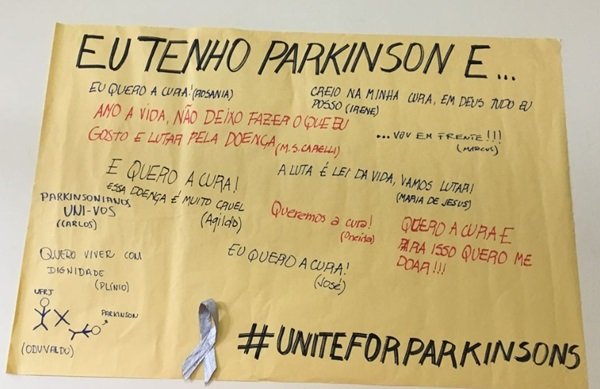 EU TENHO PARKINSON E...
EU QUERO A CURA! (ROSANIA)
CREIO NA MINHA CURA, EM DEUS TUDO EU
POSSO (IRENE)
AMO A VIDA, NÃO DEIXO FAZER O QUE EU
GOSTO E LUTAR PELA DOENÇA (M.S. CARELLI)
...VOU EM FRENTE!!!
(MARCUS)
E QUERO A CURA!
ESSA DOENÇA É MUITO CRUEL
(Agildo)
A LUTA É LEI DA VIDA, VAMOS LUTAR!
(MARIA DE JESUS)
PARKINSONIANOS
UNI-VOS
(CARLOS)
Queremos a cura!
(Oneida)
QUERO A CURA E
PARA ISSO QUERO ME
DOAR!!!
QUERO VIVER COM
DIGNIDADE
(PLÍNIO)
EU QUERO A CURA!
(JOSÉ)
UFRJ
X
PARKINSON
(ODUVALDO)
#UNITEFORPARKINSONS